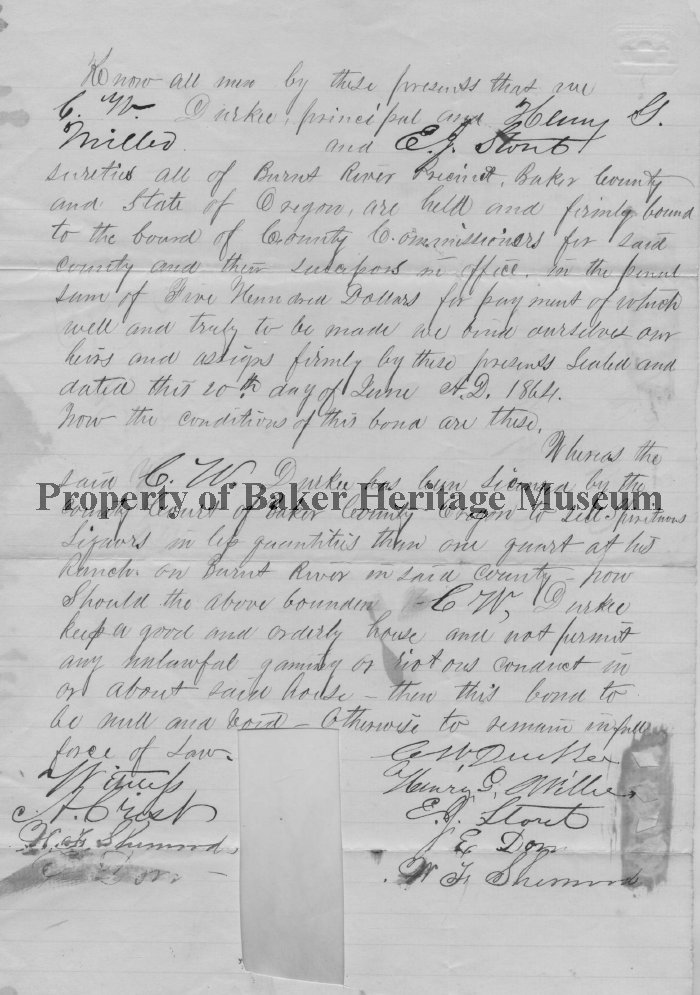 Know all men by these presents that we
C. W. Durkee, principal and Henry G.
Miller and E. J. Stout
sureties all of Burnt River Precinct, Baker County
and State of Oregon, are held and firmly bound
to the board of County Commissioners for said
county and their successors in office, in the penal
sum of Five Hundred Dollars for payment of which
well and truly to be made we bind ourselves our
heirs and assigns firmly by these presents Sealed and
dated this 20th day of June A.D. 1864.
Now the conditions of this bond are these.
Whereas the
said C. W. Durkee has been licensed by the
Property of Baker Heritage Museum
County Court of Baker County Oregon to sell Spirituous
Liquors in less quantities than one quart at his
Ranch on Burnt River in said County now
Should the above bounden C W, Durkee
keep a good and orderly house and not permit
any unlawful gaming or riotous conduct in
or about said house - then this bond to
be null and void - Otherwise to remain in full
force of Law.
C W Durkee
Witness
Henry G. Miller
A. Crist
E. J. Stout
J E
W. F. Shermond
W F Shermond